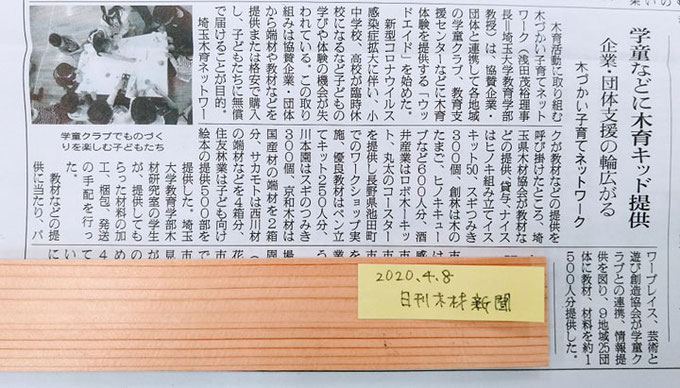 学童などに木育キッド提供
企業・団体支援の輪広がる
木づかい子育てネットワーク
木育活動に取り組む
木づかい子育てネット
ワーク（浅田茂裕理事
長＝埼玉大学教育学部
教授）は、協賛企業・
団体と連携して各地域
の学童クラブ、教育支
援センターなどに木育
体験を提供する「ウッ
ドエイド」を始めた。
新型コロナウイルス
感染症拡大に伴い、小
中学校、高校が臨時休
校になるなど子どもの
学びや体験の機会が失
われている。この取り
組みは協賛企業・団体
から端材や教材などを
提供または格安で購入
し、子どもたちに無償
で届けることが目的。
埼玉木育ネットワー
クが教材などの提供を
呼び掛けたところ、埼
玉県木材協会が教材な
どの提供、貸与、ナイス
はヒノキ組み立てイス
キット50、スギつみき
300個、創林は木の
たまご、ヒノキキュー
ブなど600人分、酒
井産業はロボ木ーキッ
ト、丸太のコースター
を提供し長野県池田町
でのワークショップ実
施、優良教材はペン立
てキット200人分、
川本園はスギのつみき
300個、京和木材は
国産材の端材を2箱
分、サカモトは西川材
の端材などを4箱分、
住友林業は子ども向け
絵本の提供500部を
提供した。埼玉
大学教育学部木
材研究室の学生
が、提供しても
らった材料の加
工、梱包、発送
の手配を行っ
た。
教材などの提
供に当たり、パ
ワープレイス、芸術と
遊び創造協会が学童ク
ラブとの連携、情報提
供を図り、9地域25団
体に教材、材料を約1
500人分提供した。
学童クラブでものづく
りを楽しむ子どもたち
2020.4.8
日刊木材新聞